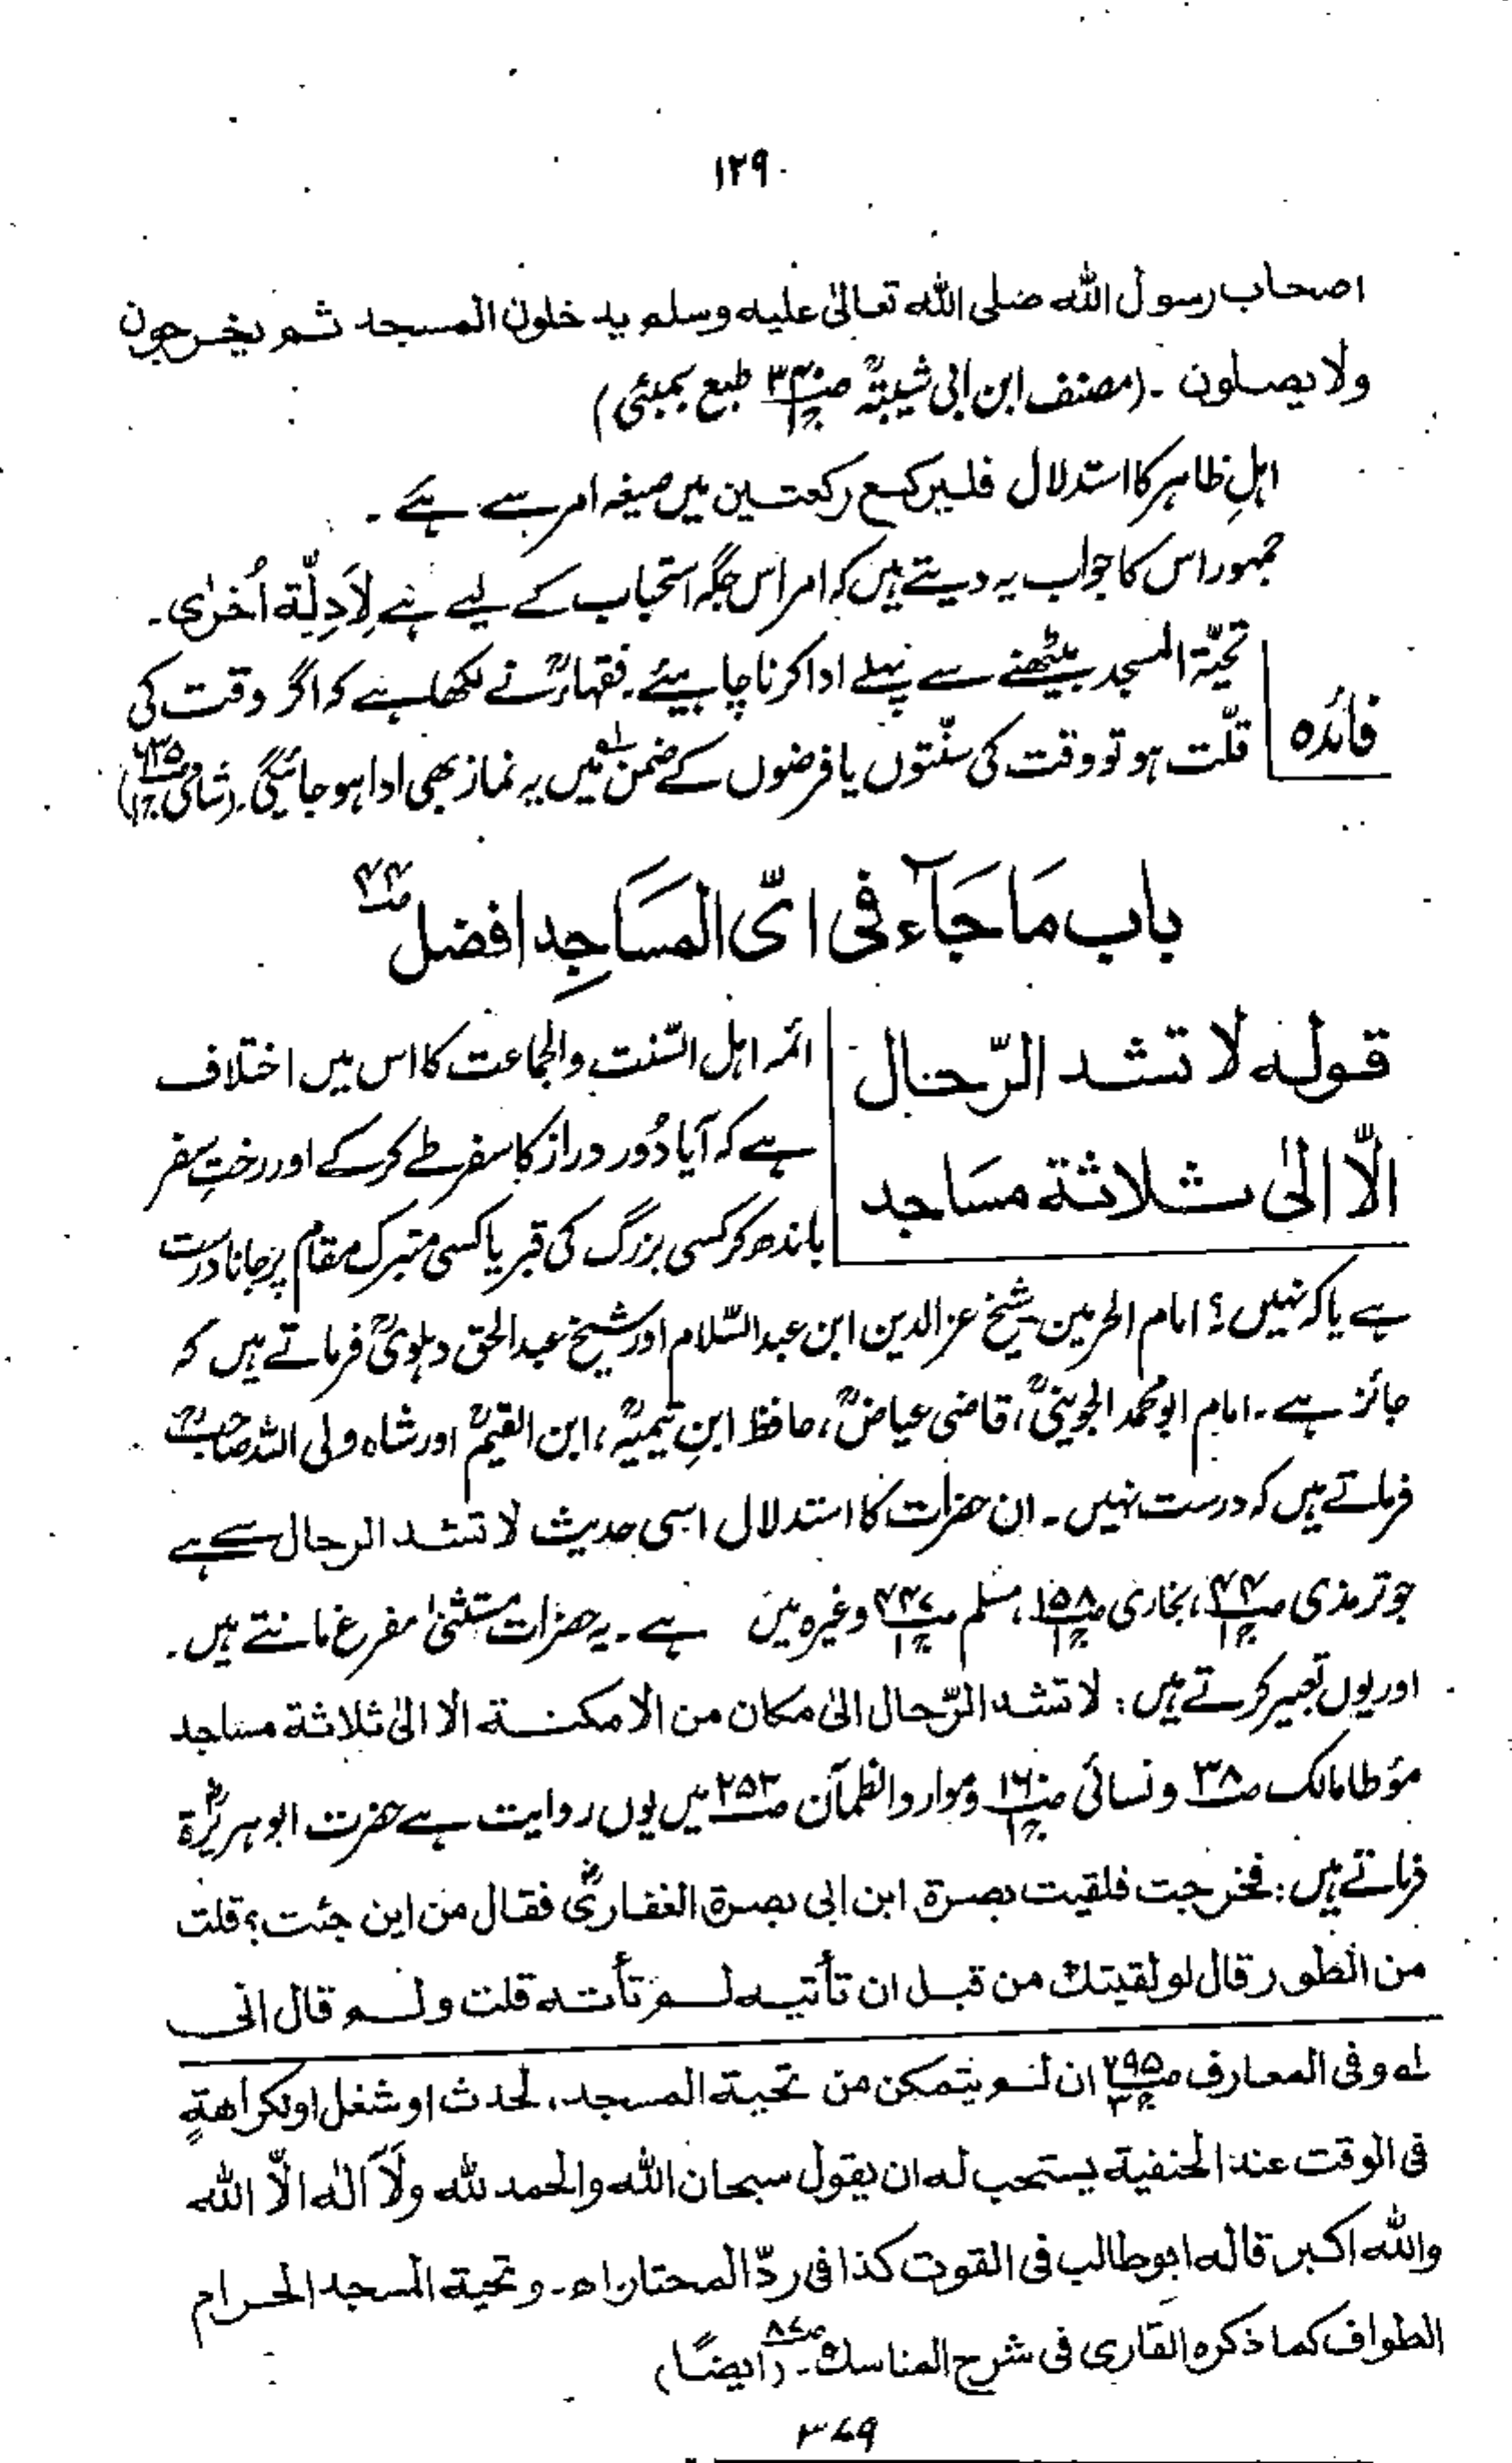 ۱۲۹
اصحاب رسول الله صلی الله تعالیٰ علیه وسلم یدخلون المسجد ثم یخرجون
ولا یصلون ۔ (مصنف ابن ابی شیبۃؒ ص۳۴۰ ج۱ طبع بمبئی)
اہلِ ظاہر کا استدلال فلیرکع رکعتین میں صیغہ امر سے ہے ۔
جمہور اس کا جواب یہ دیتے ہیں کہ امر اس جگہ استحباب کے لیے ہے لِاَدِلَّة اُخرٰی۔
فائدہ
تحیّۃ المسجد بیٹھنے سے پہلے ادا کرنا چاہیئے۔ فقہاءؒ نے لکھا ہے کہ اگر وقت کی
قلّت ہو تو وقت کی سنّتوں یا فرضوں کے ضمن لہ میں یہ نماز بھی ادا ہو جائیگی۔ (شامی ص۶۳۵ ج۱)
باب مَا جَآء فی ایّ المسَاجِد افضل ص۴۴
قوله لا تشد الرّحال
الّا الیٰ ثلاثة مسَاجد
ائمہ اہل السّنت والجماعت کا اس میں اختلاف
ہے کہ آیا دُور دراز کا سفر طے کر کے اور رختِ سفر
باندھ کر کسی بزرگ کی قبر یا کسی متبرک مقام پر جانا درست
ہے یا کہ نہیں؟ امام الحرمین شیخ عز الدین ابن عبد السّلام اور شیخ عبد الحق دہلویؒ فرماتے ہیں کہ
جائز ہے۔ امام ابو محمد الجوینیؒ، قاضی عیاضؒ، حافظ ابنِ تیمیہؒ، ابن القیمؒ اور شاہ ولی اللہ صاحبؒ
فرماتے ہیں کہ درست نہیں۔ ان حضرات کا استدلال اسی حدیث لا تشد الرحال سے ہے
جو ترمذی ص۴۴ ج۱، بخاری ص۱۵۸ ج۱، مسلم ص۴۴۷ ج۱ وغیرہ میں ہے۔ یہ حضرات مستثنیٰ مفرغ مانتے ہیں۔
اور یوں تعبیر کرتے ہیں: لا تشد الرّحال الیٰ مکان من الامکنة الا الیٰ ثلاثة مساجد
مؤطا مالک ص۳۸ و نسائی ج۱ و موارد الظمآن ص۲۵۲ میں یوں روایت ہے حضرت ابو ہریرۃؓ
فرماتے ہیں: فخرجت فلقیت بصرة ابن ابی بصرة الغفاریؓ فقال من این جئت؟ قلت
من الطور قال لو لقیتك من قبل ان تأتیه لم تأته قلت ولم قال انی
لہ وفی المعارف ص۲۹۵ ج۳ ان لم یتمکن من تحیة المسجد، لحدث او شغل او لکراهةٍ
فی الوقت عند الحنفیة یستحب له ان یقول سبحان الله والحمد لله ولَآ الٰه الّا الله
والله اکبر قاله ابو طالب فی القوت کذا فی ردّ المحتار اھ۔ وتحیة المسجد الحرام
الطواف کما ذکره القاری فی شرح المناسك ص۸۷۔ (ایضًا)
۳۷۹